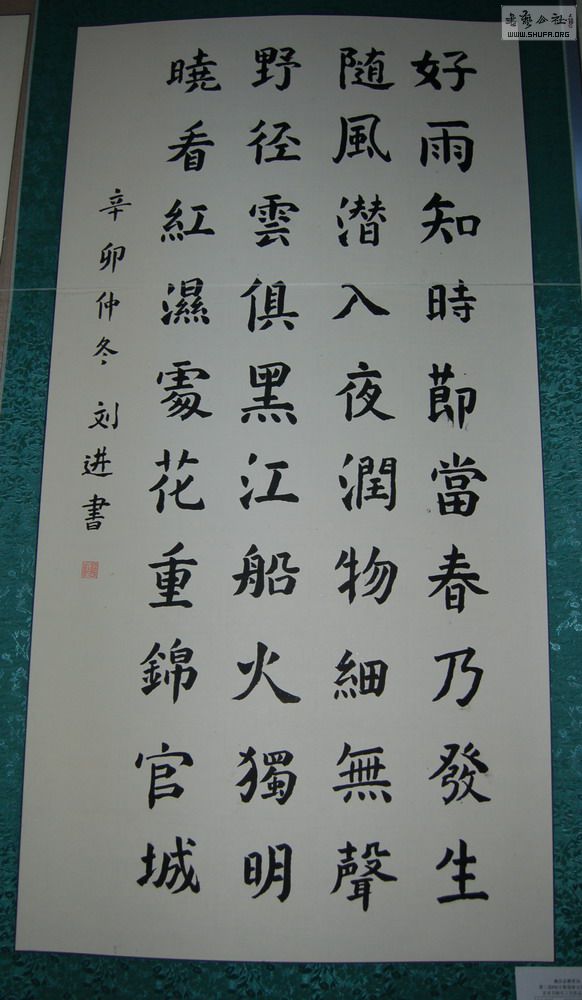 好雨知時節當春乃發生
随風潜入夜潤物細無聲
野径雲俱黑江船火獨明
曉看紅濕處花重錦官城
辛卯仲冬 刘进書
書藝公社
WWW.SHUFA.ORG